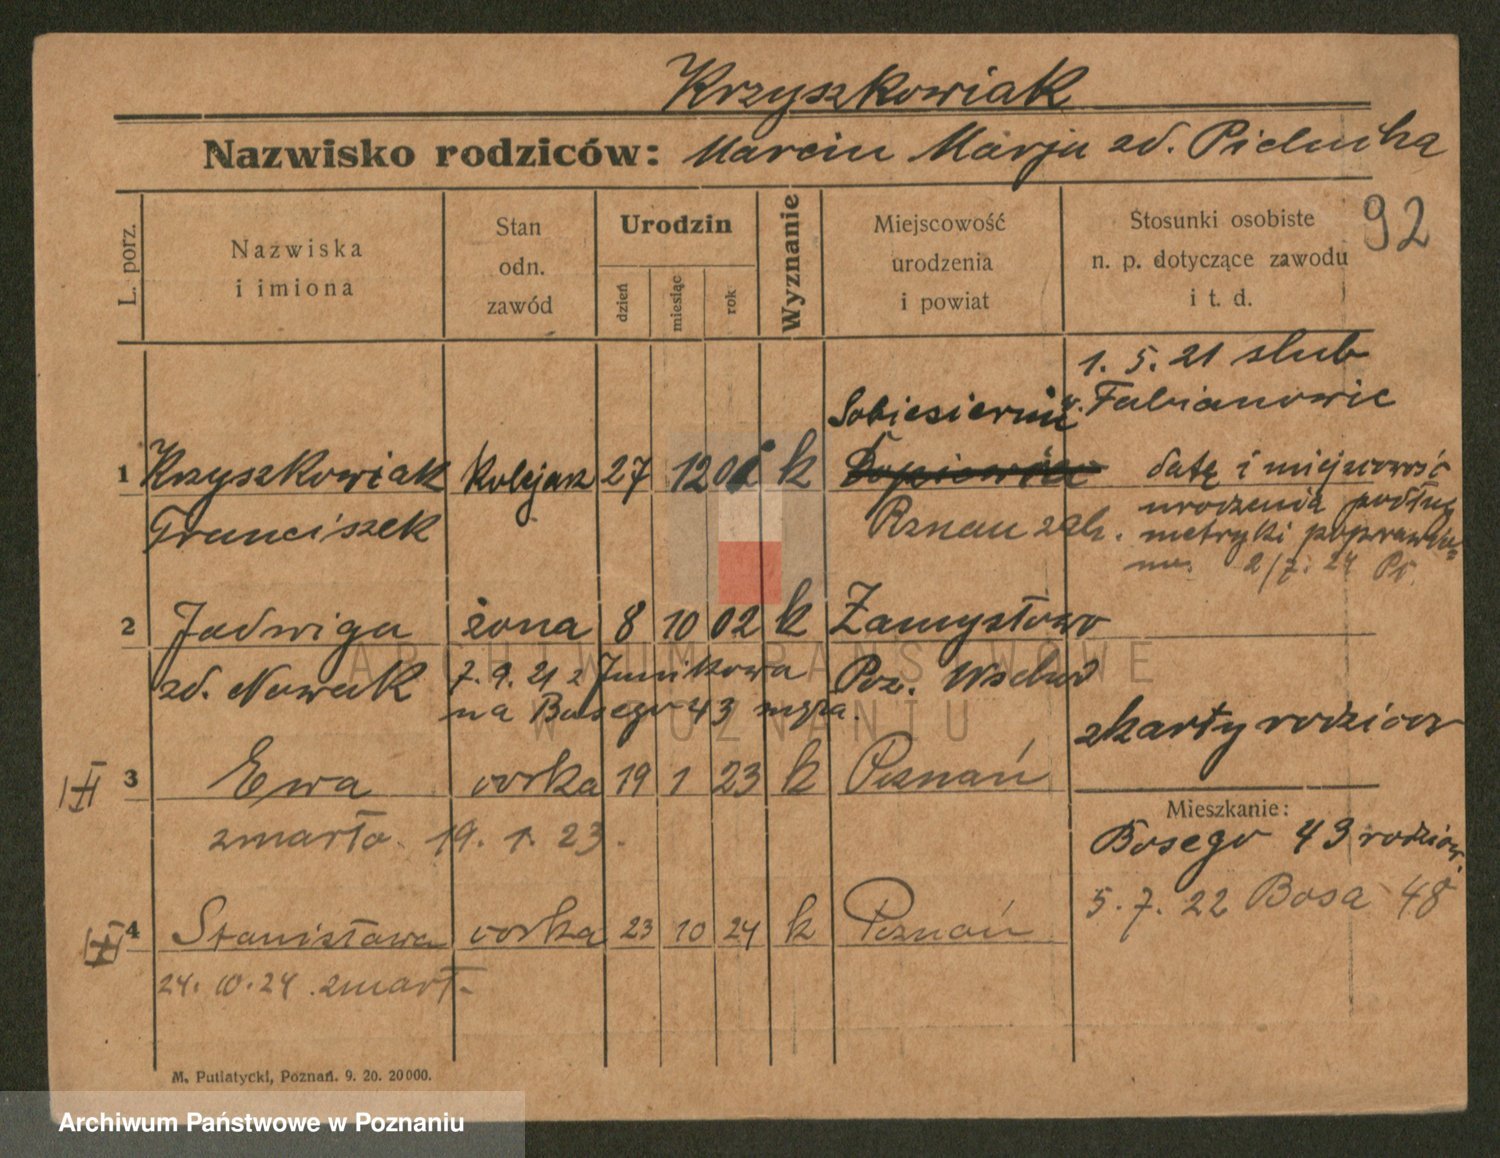 Krzyszkowiak
Nazwisko rodziców: Marcin Marja zd. Pielucha
92
L. porz.
Nazwiska
i imiona
Stan
odn.
zawód
Urodzin
dzień
miesiąc
rok
Wyznanie
Miejscowość
urodzenia
i powiat
Stosunki osobiste
n. p. dotyczące zawodu
i t. d.
1. 5. 21 slub
w. Fabianowie
Sobiesiernie
1 Krzyszkowiak kolejarz 27 12 01 k
Franciszek
Pznan zach.
datę i miejscowość
urodzenia podług
metryki poprawio=
no. 2/7. 24
2 Jadwiga żona 8 10 02 k Zamysłowo
zd. Nowak 7. 9. 21 z Junikowa Poz. Wschod
na Bosego 43 mpza.
z karty rodziców
3 Ewa corka 19 1 23 k Poznań
zmarła. 19. 1. 23.
Mieszkanie:
Bosego 43 rodziców.
5. 7. 22 Bosa 48
4 Stanisława corka 23 10 24 k Poznań
24. 10. 24. zmarł.
M. Putiatycki, Poznań. 9. 20. 20000.
ARCHIWUM PAŃSTWOWE
W POZNANIU
Archiwum Państwowe w Poznaniu